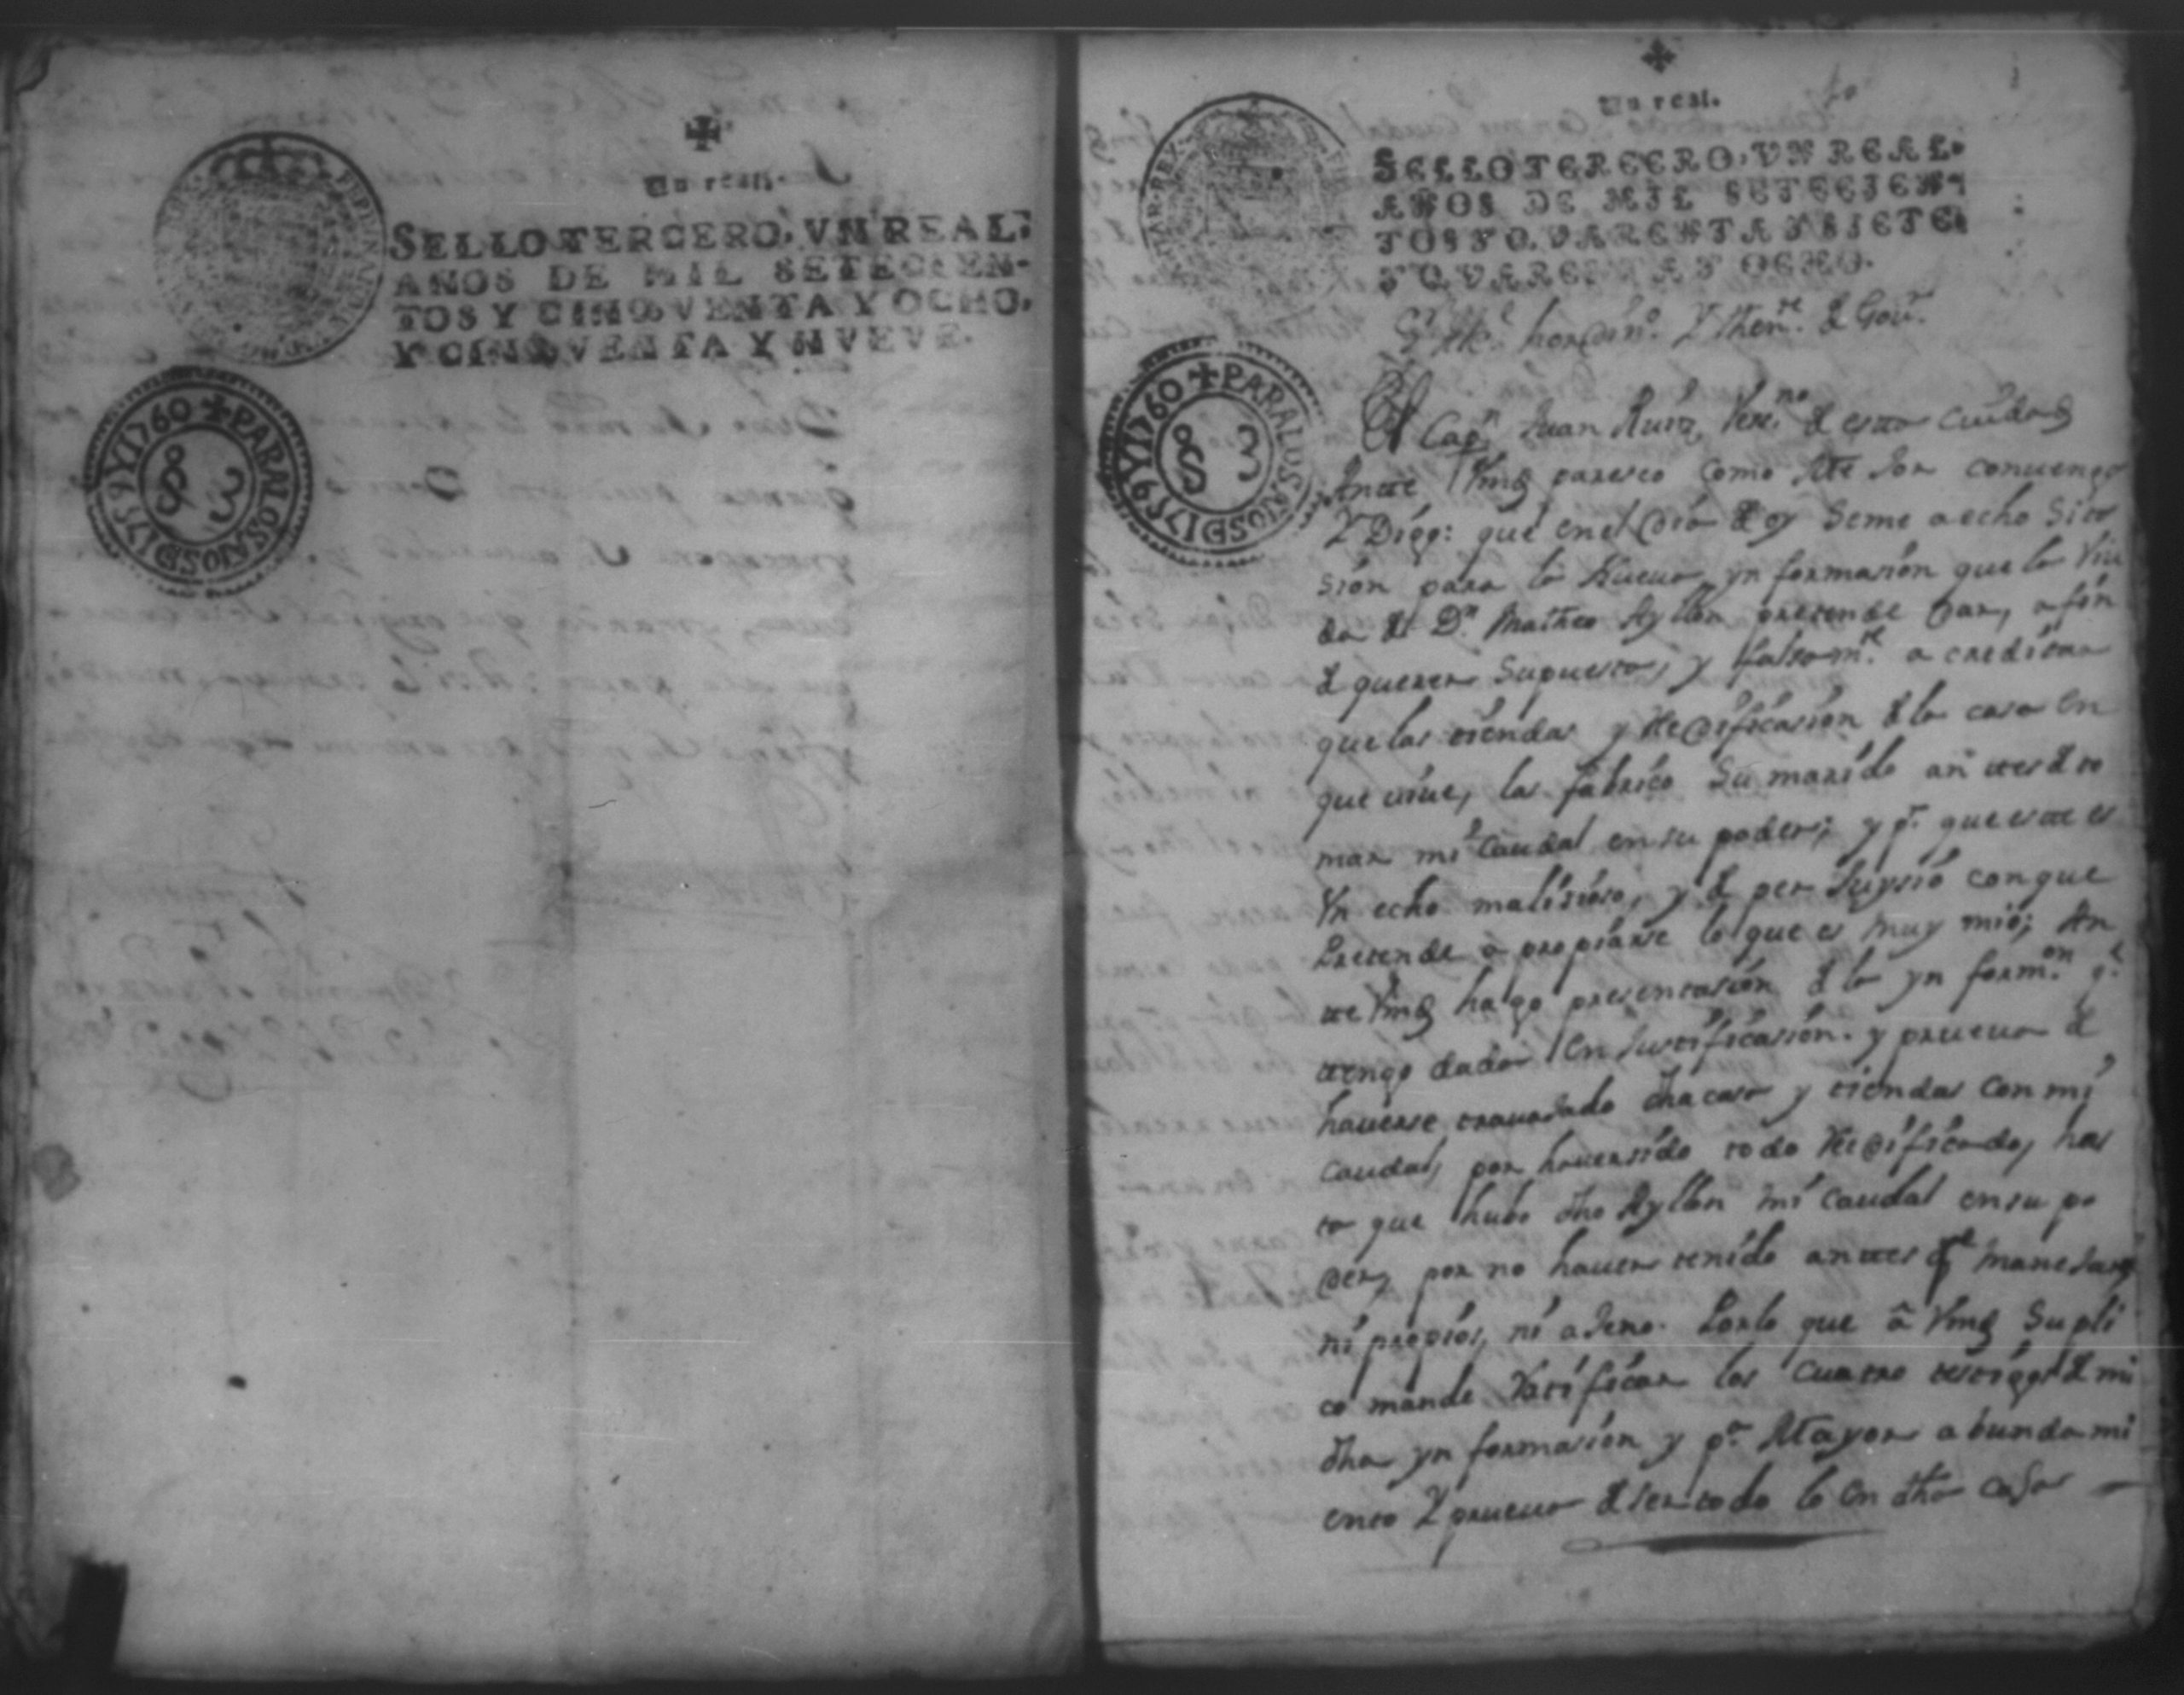 Un real.
SELLO TERCERO, VN REAL:
AÑOS DE MIL SETECIEN-
TOS Y CINQVENTA Y OCHO,
Y CINQVENTA Y NVEVE.
PARA LOS AÑOS DE 1759 Y 1760
S 3
Un real.
SELLO TERCERO, VN REAL.
AÑOS DE MIL SETECIEN-
TOS Y QVARENTA Y SIETE,
Y QVARENTA Y OCHO.
PARA LOS AÑOS DE 1759 Y 1760
S 3
Sr. Alce. hordino. Y thente. de Gour.
El Capn. Juan Ruiz, Vecno. de esta ciudad
Antte Vmd paresco como Mexor convenga
Y Digo: que en el dia de oy se me a echo sita
sión para la Nueva ynformasión que la Viu
da de Dn. Matheo Ayllon pretende dar, a fin
de querer supuesta, y falsamte. acreditar
que las tiendas y Redificasión de la casa en
que viue, las fabricó su marido anttes de to
mar mi Caudal en su poder; y pr. que este es
Yn echo malisioso, y de perjuysio con que
pretende apropiarse lo que es muy mio; An
tte Vmd hago presentasión de la ynformon. qe.
ttengo dada en Justificasión y prueua de
hauerse trauajado dha casa y tiendas con mi
caudal, por hauer sido todo Redificado, has
ta que hubo dho Ayllon mi caudal en su po
der, por no hauer tenido anttes qe manejar
ni propios, ni ajeno. Por lo que â Vmd supli
co mande Ratificar los cuatro testigos de mi
dha ynformasión y pa. Mayor abundami
ento Y prueua de ser todo lo en dha casa